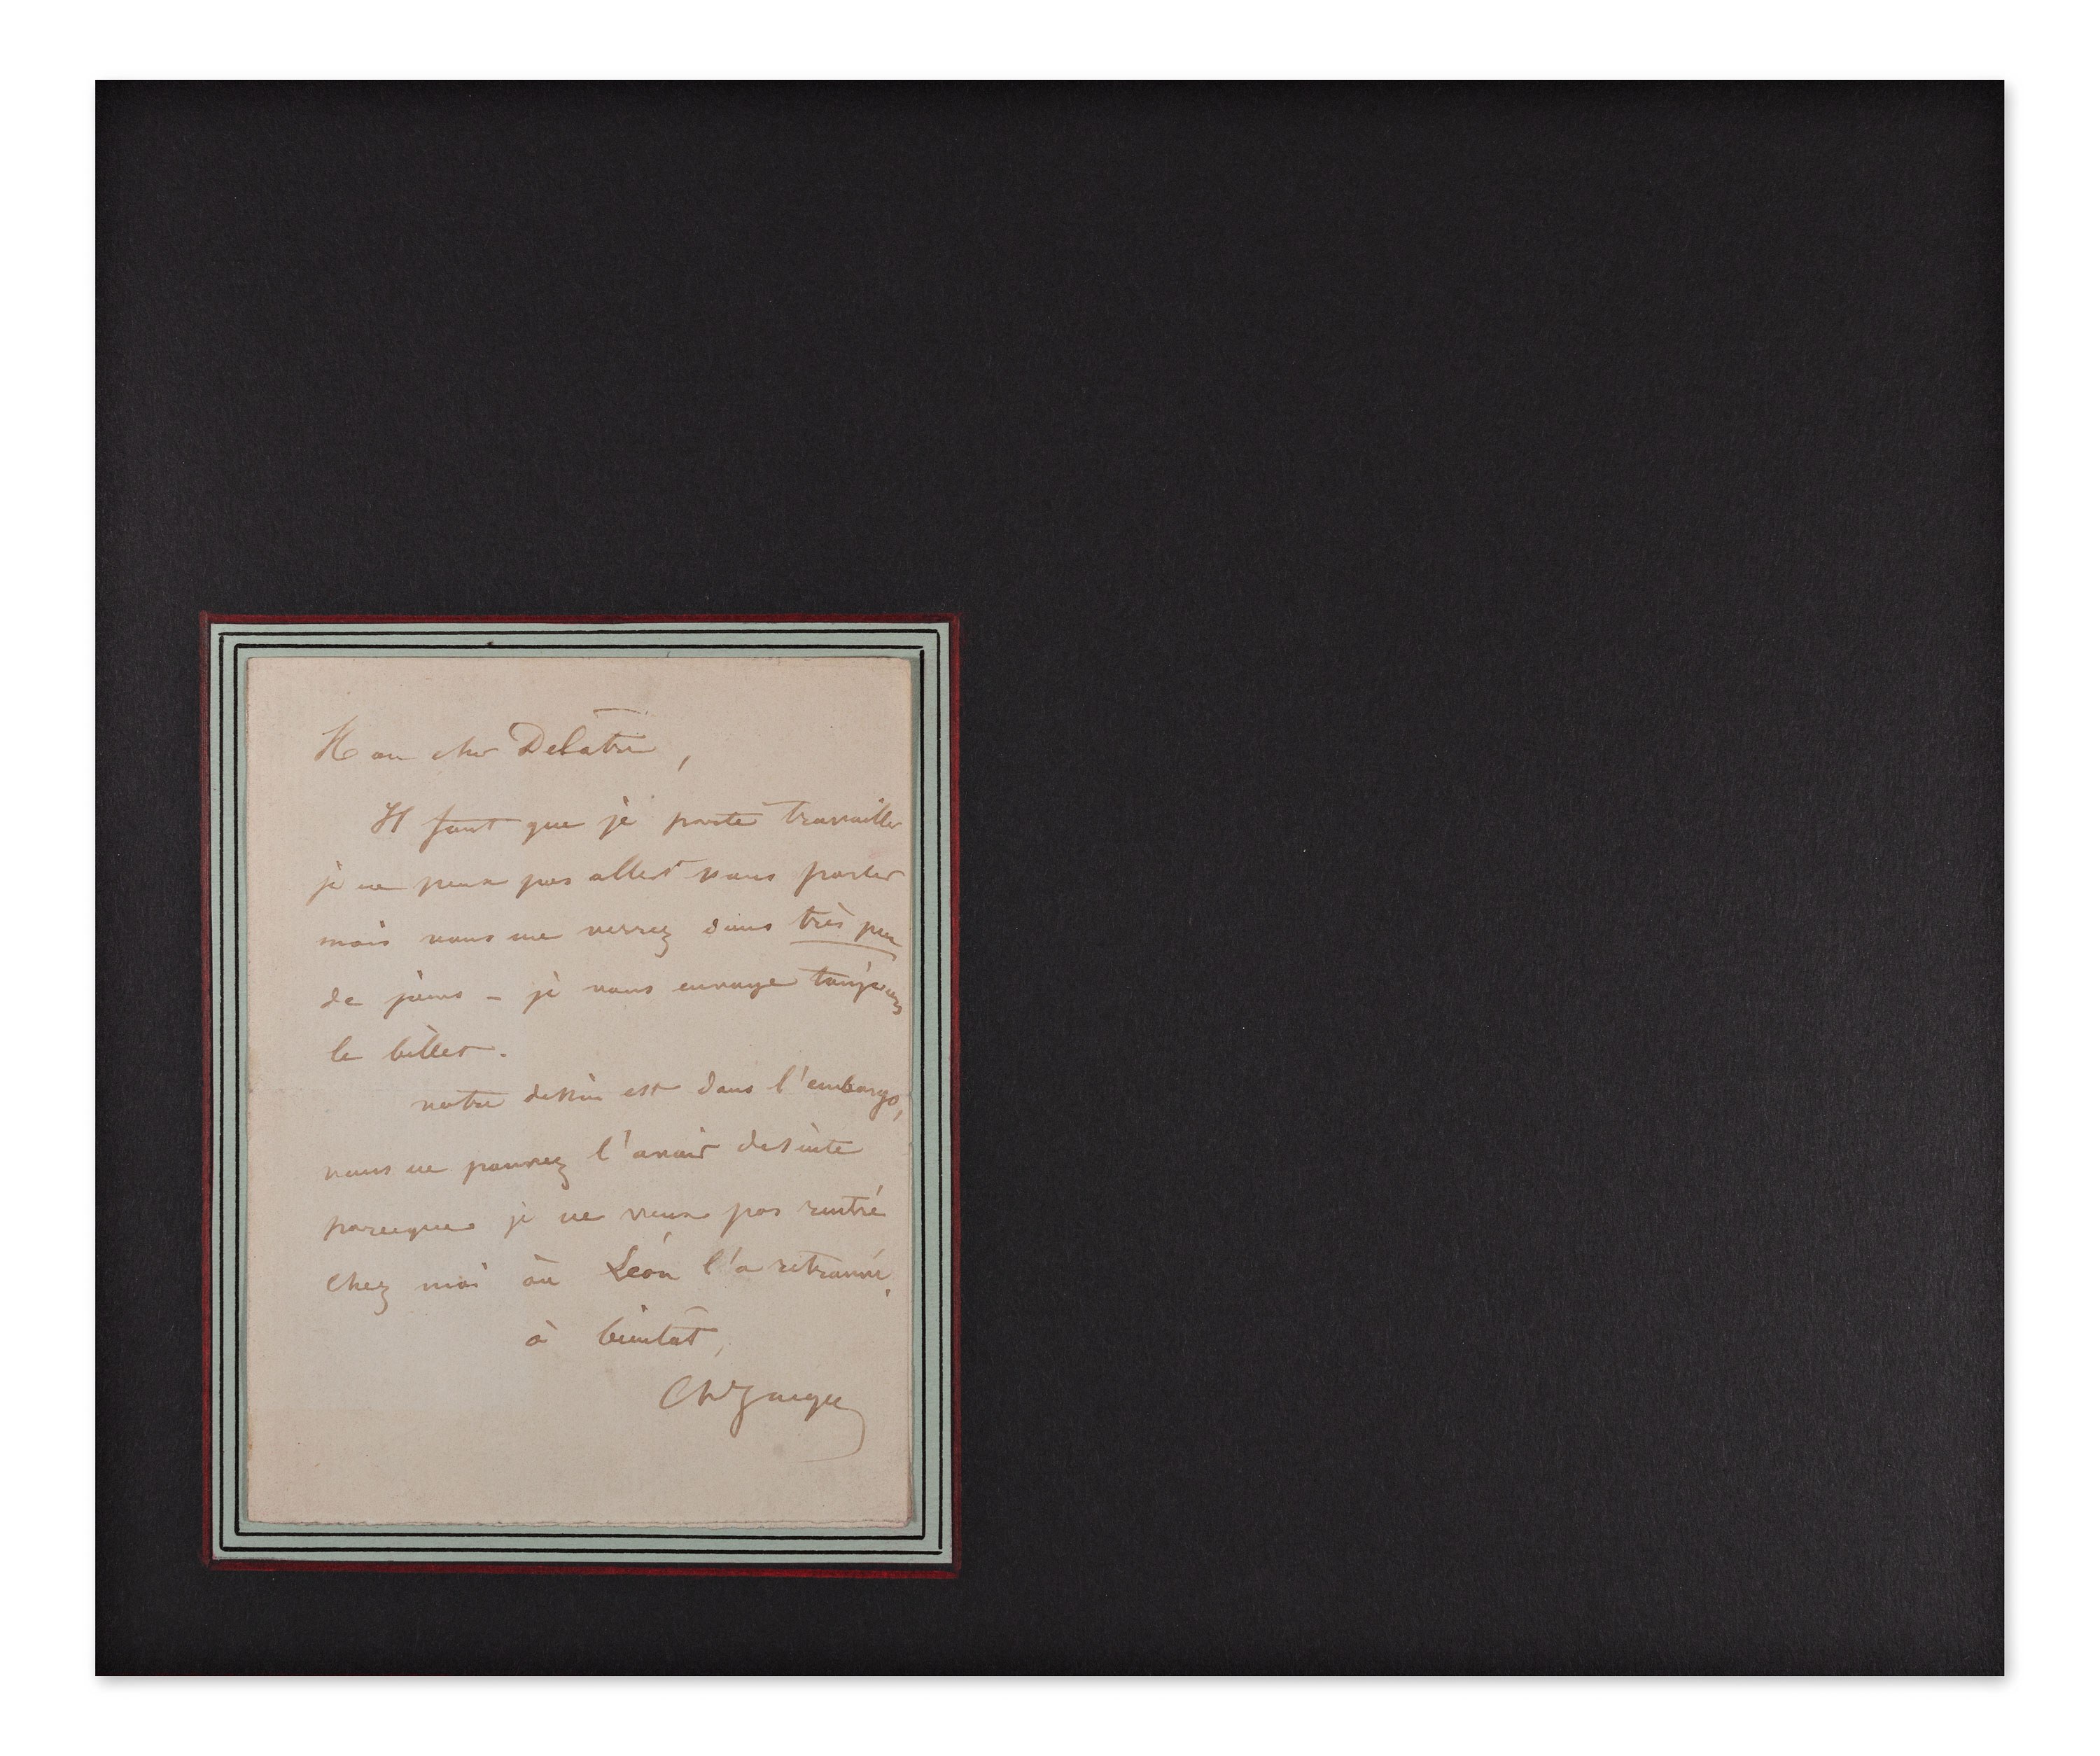 Mon cher Delatre,
Il faut que je parte travailler
je ne peux pas aller vous parler
mais vous me verrez dans très peu
de jours – je vous envoye toujours
le billet.
votre dessin est dans l'embargo,
vous ne pouvez l'avoir desuite
parceque je ne veux pas rentré
chez moi où Léon l'a retrouvé.
à bientot,
Ch Jacque